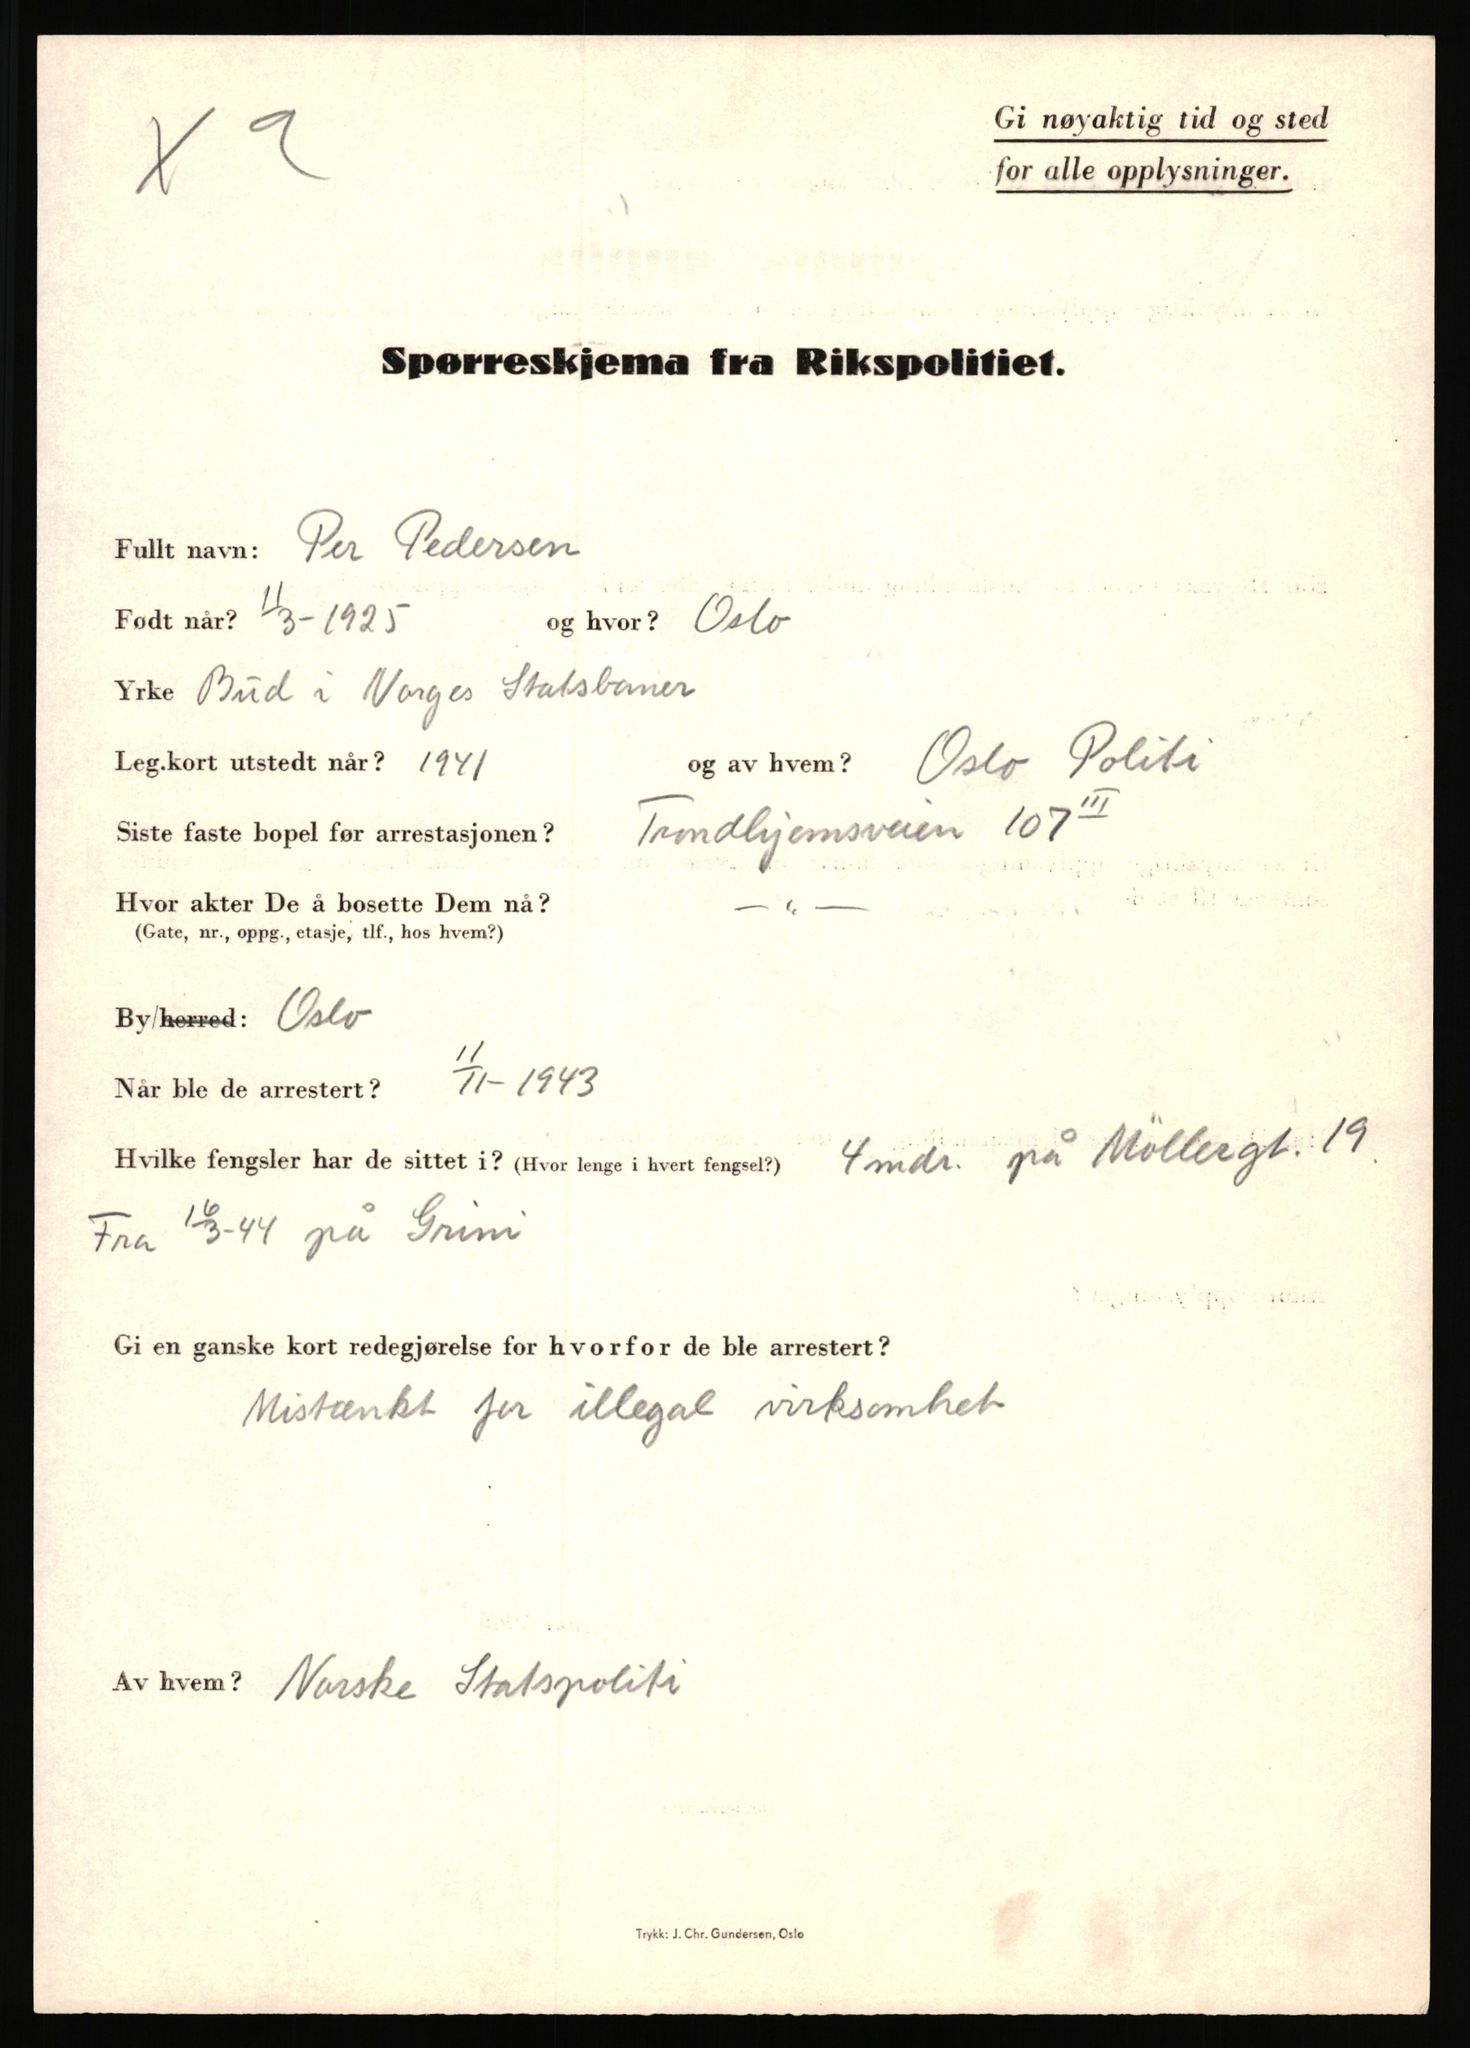 X a
Gi nøyaktig tid og sted
for alle opplysninger.
Spørreskjema fra Rikspolitiet.
Fullt navn: Per Pedersen
Født når? 11/3-1925 og hvor? Oslo
Yrke Bud i Norges Statsbaner
Leg.kort utstedt når? 1941 og av hvem? Oslo Politi
Siste faste bopel før arrestasjonen? Trondhjemsveien 107 III
Hvor akter De å bosette Dem nå? — " —
(Gate, nr., oppg., etasje, tlf., hos hvem?)
By/herred: Oslo
Når ble de arrestert? 11/11-1943
Hvilke fengsler har de sittet i? (Hvor lenge i hvert fengsel?) 4 mdr. på Möllergt. 19
Fra 16/3-44 på Grini
Gi en ganske kort redegjørelse for hvorfor de ble arrestert?
Mistænkt for illegal virksomhet
Av hvem? Norske Statspoliti
Trykk: J. Chr. Gundersen, Oslo